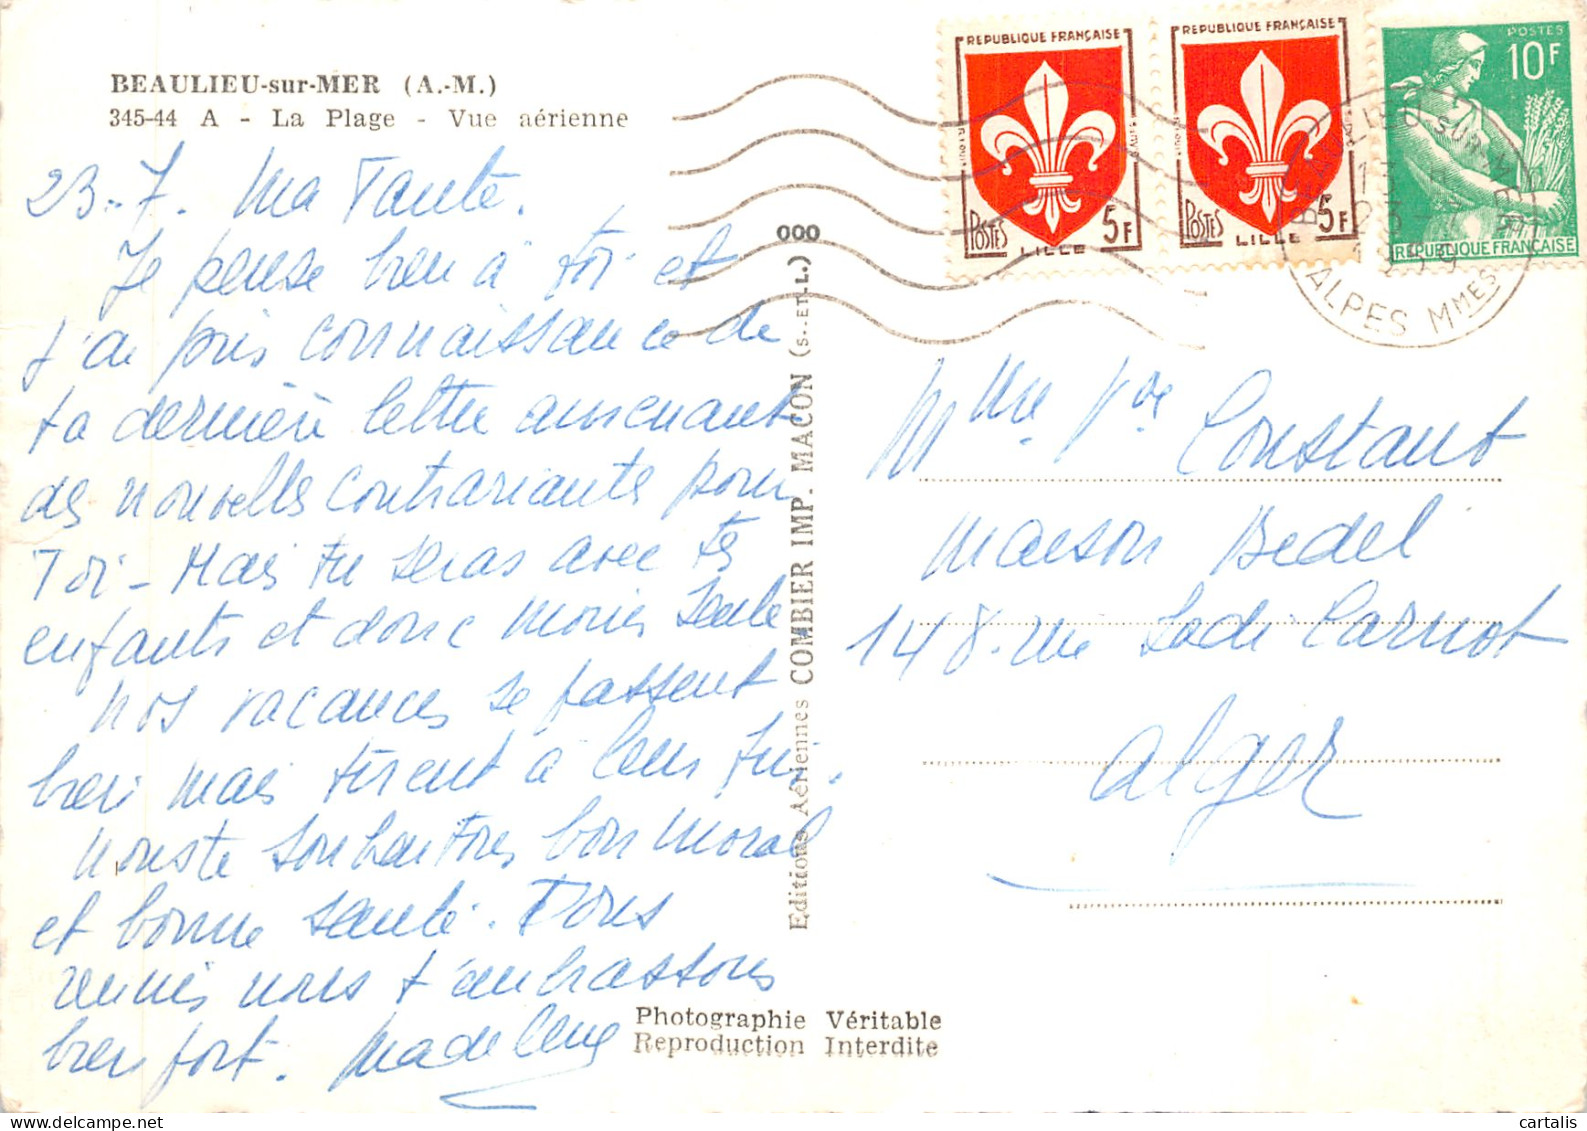 BEAULIEU-sur-MER (A.-M.)
345-44 A - La Plage - Vue aérienne
23-7. Ma Tante.
Je pense bien à toi et
j'ai pris connaissance de
ta dernière lettre amenant
des nouvelles contrariantes pour
Toi - Mais tu seras avec tes
enfants et donc moins seule
nos vacances se passent
bien mais tirent à leur fin.
nous te souhaitons bon moral
et bonne santé. Tous
réunis nous t'embrassons
bien fort. Madeleine
Editions Aériennes COMBIER IMP. MACON (S.-ET-L.)
000
Photographie Véritable
Reproduction Interdite
REPUBLIQUE FRANÇAISE
POSTES 5F
LILLE
REPUBLIQUE FRANÇAISE
POSTES 5F
LILLE
POSTES
10F
REPUBLIQUE FRANÇAISE
BEAULIEU-SUR-MER
13 H
23-7
1959
ALPES MMES
Mme Vve Constant
Maison Bedel
148. rue Sadi Carnot
Alger
cartalis